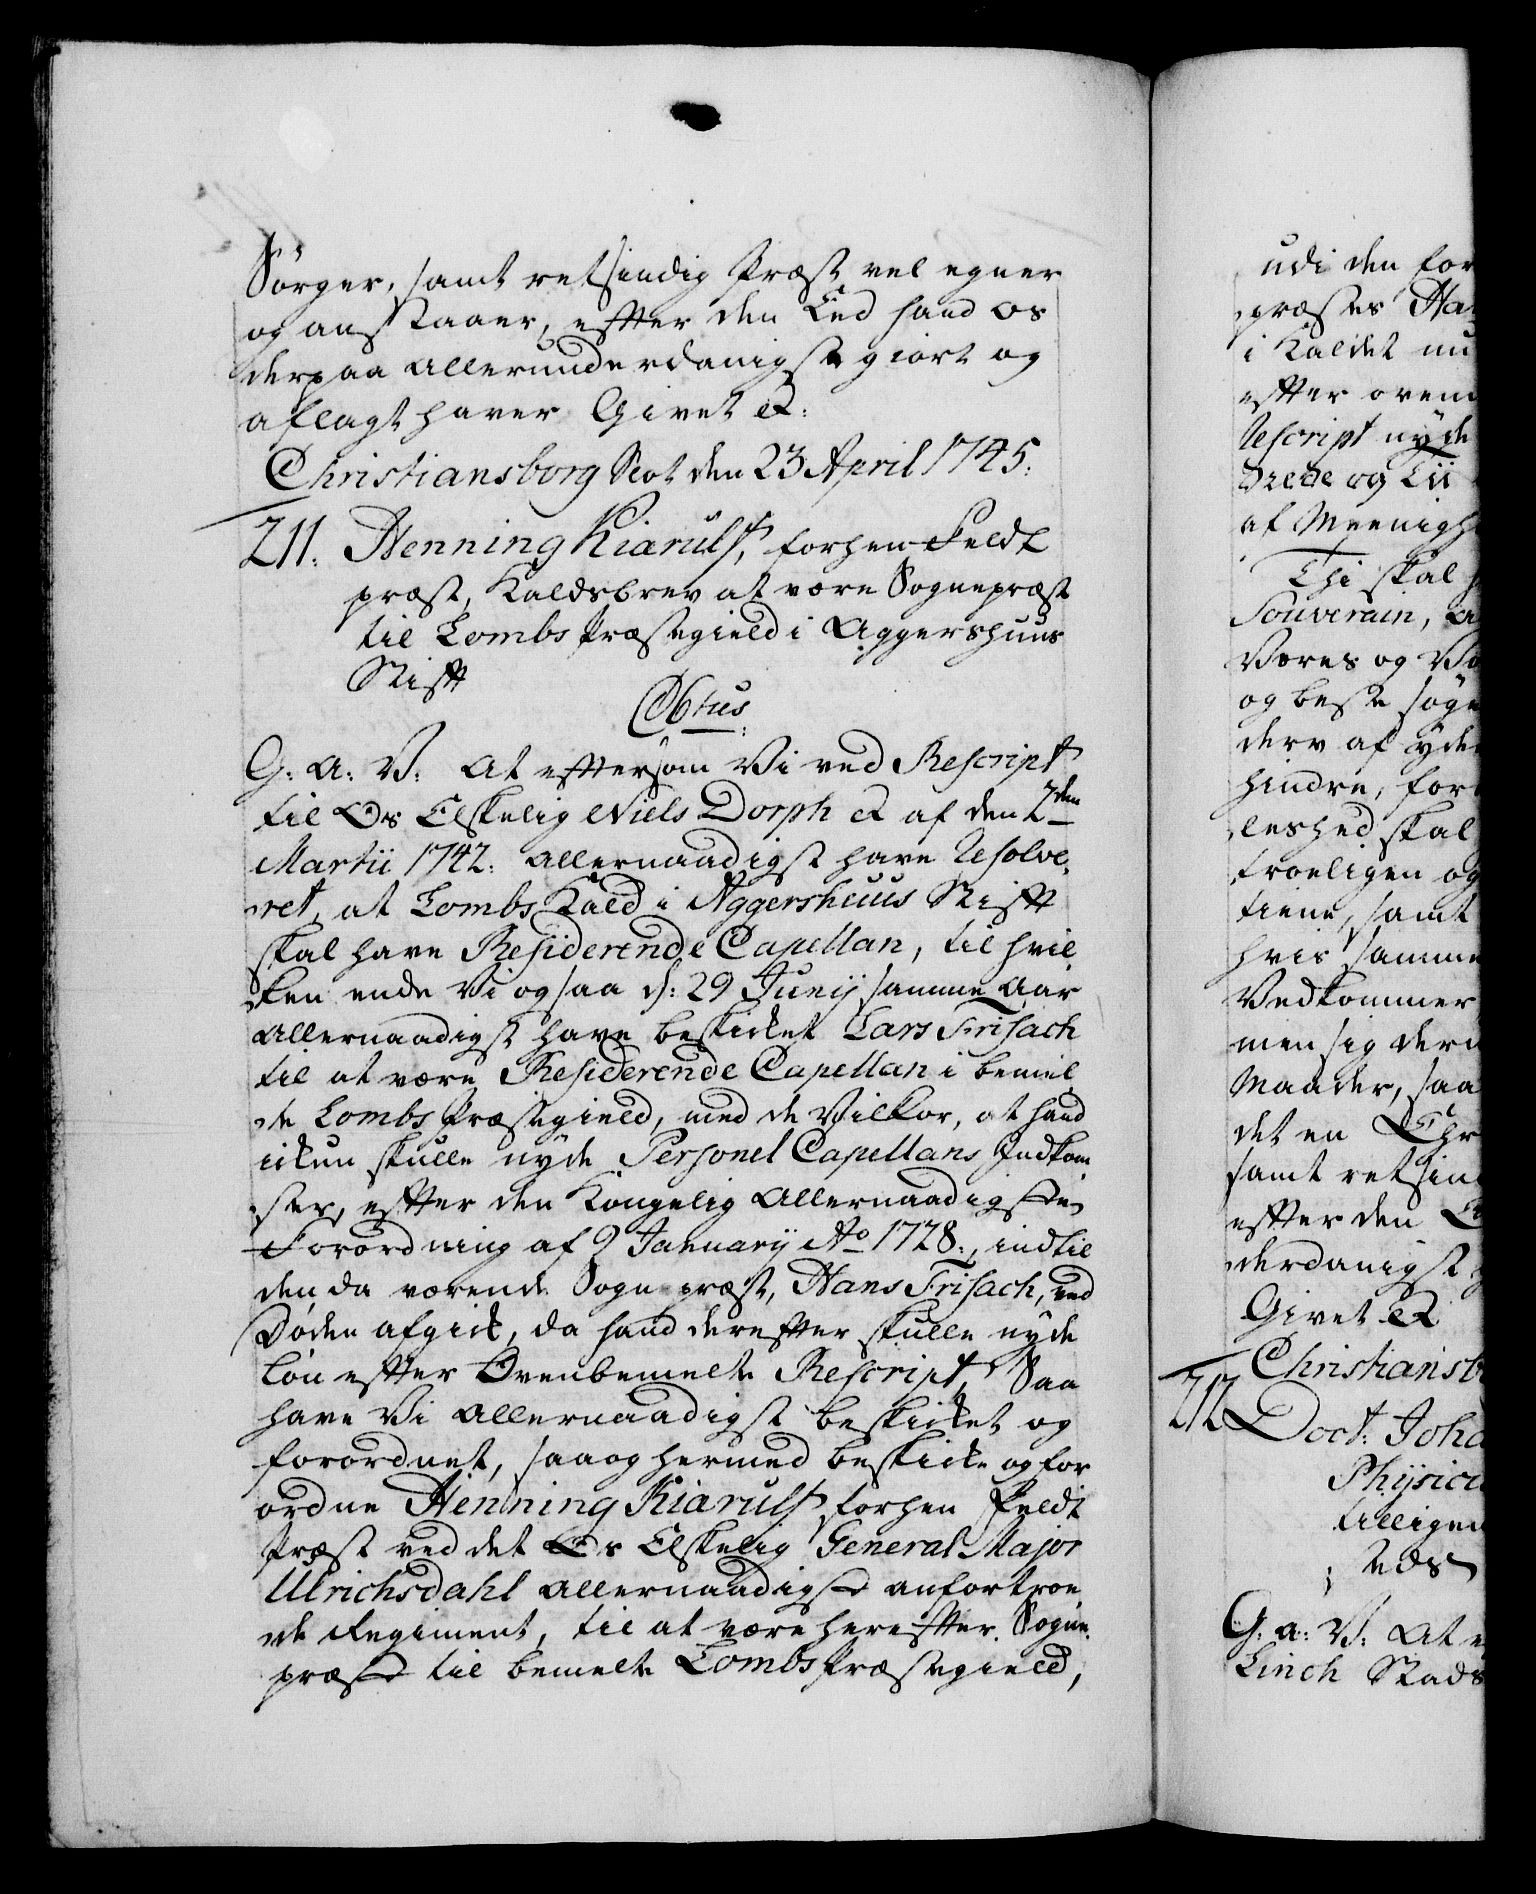 Sörger, samt retsindig Præst vel egner
og anstaaer, efter den Eed hand os
derpaa allerunderdanigst giort og
aflagt haver Givet &.
Christiansborg Slot den 23 April 1745.
211. Henning Kiærulf, forhen Feldt
præst, Kaldsbrev at være Sognepræst
til Lombs Præstegield i Aggershuus
Stift
G: A: V: At eftersom Vi ved Rescript
til Os Elskelig Niels Dorph & af den 2den
Martii 1742. allernaadigst have Resolve,
ret, at Lombs Kald i Aggershuus Stift
skal have Resiiderende Capellan, til hvil
ken ende Vi og saa d: 29 Junij samme Aar
allernaadigst have beskicket Lars Frisach
til at være Residerende Capellan i bemel
te Lombs Præstegield, med de Vilkor, at hand
ickun skulle nyde Personel Capellans Indkom
ster, efter den Kongelig allernaadigste
Forordning af 9 January Ao 1728., indtil
den da værende Sognepræst, Hans Frisach, ved
Døden afgick, da hand derefter skulle nyde
Løn efter Ovenbemelte Rescript, Saa
have Vi allernaadigst beskicket og
forordnet, saa og hermed beskicke og for
ordne Henning Kiærulf forhen Feldt
Præst ved det Os Elskelig General Major
Ulrichsdahl allernaadigst anfortroe
de Regiment, til at være herefter Sogne,
præst til bemelte Lombs Præstegield,
udi den for
præstes Ha
i Kaldet nu
efter oven
Rescript nyde
af Meenigh
Thi skal h
Souverain, a
Vores og V
og beste søge
derv af yder
hindre, for
leshed skal
troeligen og
tiene, samt
hvis samme
Vedkommer
men sig dern
Maader, saa
det en Chr
samt retsin
efter den E
derdanigst
Givet &
Christiansb
212 Doct: Joha
Physicu
tilligen
G: A: V: At e
Linch Stads